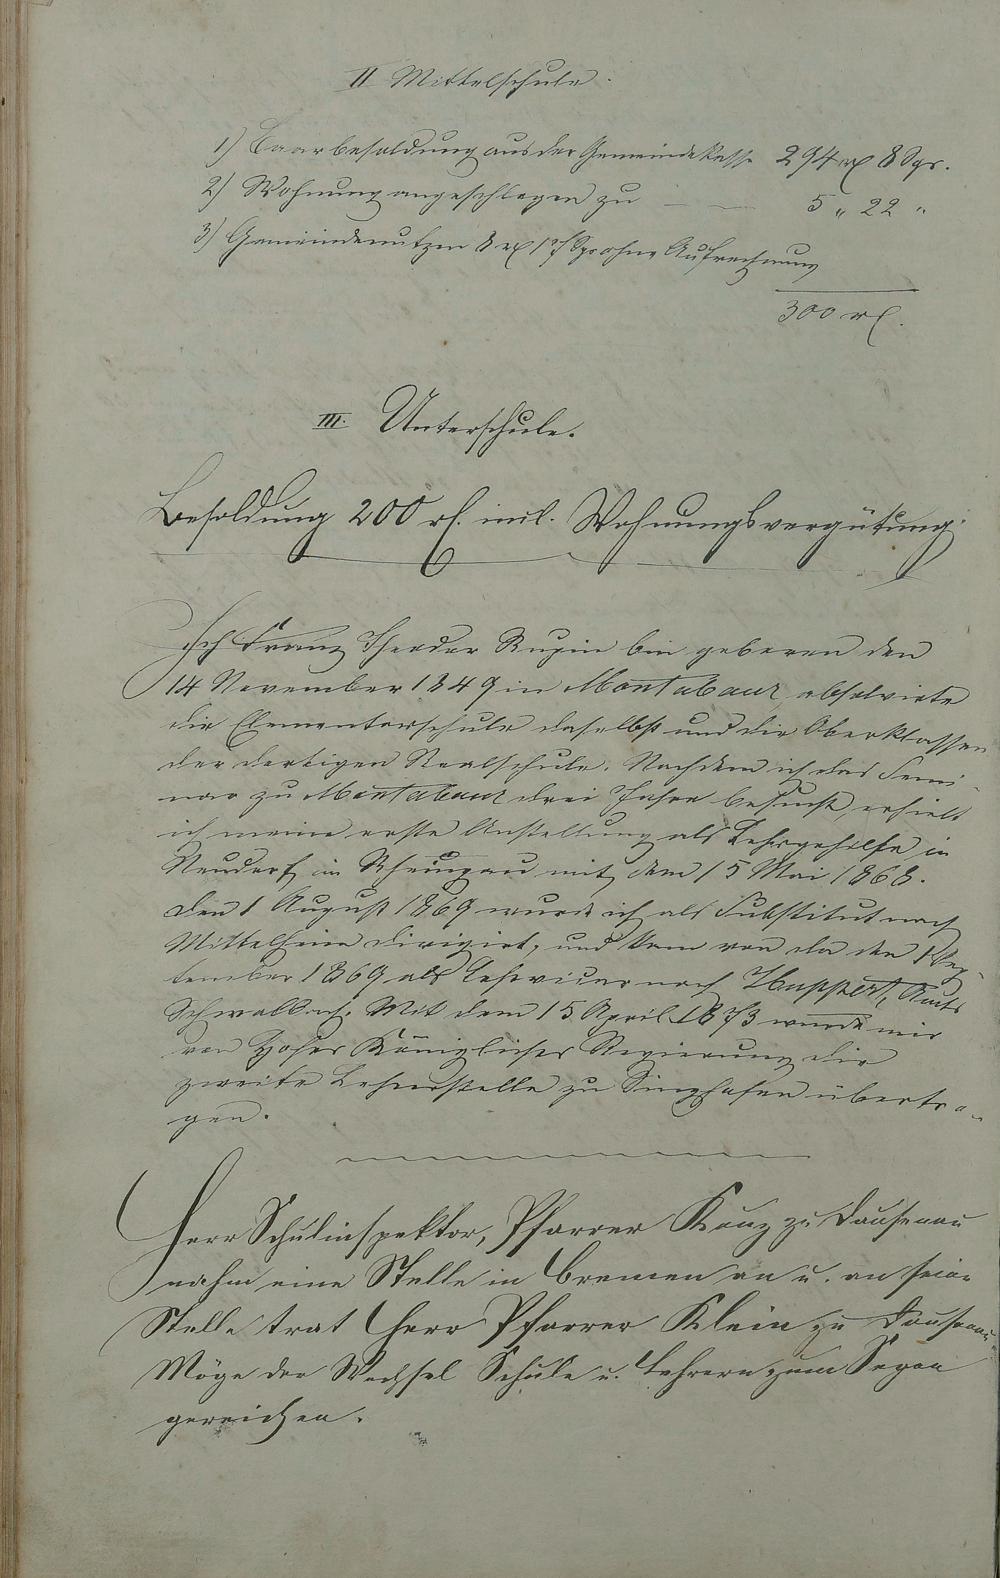 II Mittelschule.
1) Baarbesoldung aus der Gemeindekasse 294 rl 8 Sgr.
2) Wohnung angeschlagen zu — — 5 „ 22 „
3) Gemeindenutzen 8 rl 17 Sgr ohne Aufrechnung
300 rl.
III. Unterschule.
Besoldung 200 rl. incl. Wohnungsvergütung.
Ich Franz Theodor bin geboren den
14 November 1849 in Montabaur, absolvirte
die Elementarschule daselbst und die Oberklassen
der dortigen Realschule. Nachdem ich das Semi-
nar zu Montabaur drei Jahre besucht, erhielt
ich meine erste Anstellung als Lehrgehilfe in
Neudorf im Rheingau mit dem 15 Mai 1868.
Den 1 August 1869 wurde ich als Substitut nach
Mittelheim dirigirt, und kam von da den 1 Sep-
tember 1869 als Lehrvicar nach Huppert, Amts
Schwalbach. Mit dem 15 April 1873 wurde mir
von Hoher Königlicher Regierung die
zweite Lehrerstelle zu Singhofen übertra-
gen.
Herr Schulinspektor, Pfarrer zu Dausenau
nahm eine Stelle in Bremen an u. an seine
Stelle trat Herr Pfarrer Klein zu Dausenau.
Möge der Wechsel Schule u. Lehrern zum Segen
gereichen.